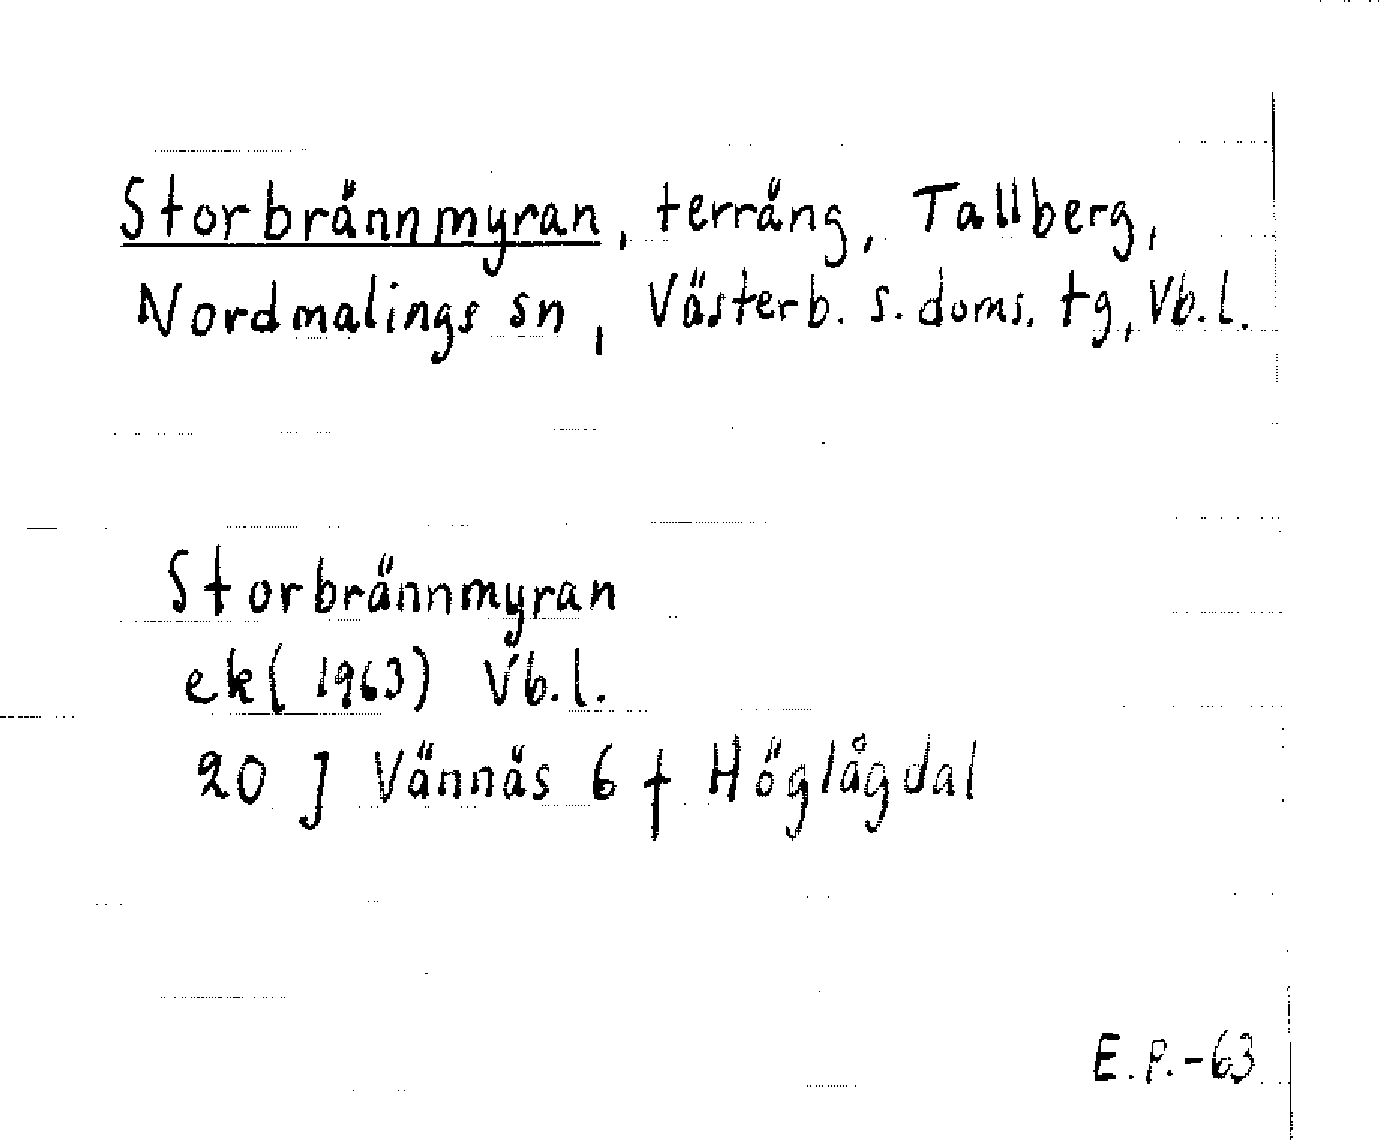 Storbrännmyran, terräng, Tallberg,
Nordmalings sn, Västerb. s. doms. tg, Vb. l.
Storbrännmyran
ek (1963) Vb. l.
20 J Vännäs 6 f Höglågdal
E. P. -63